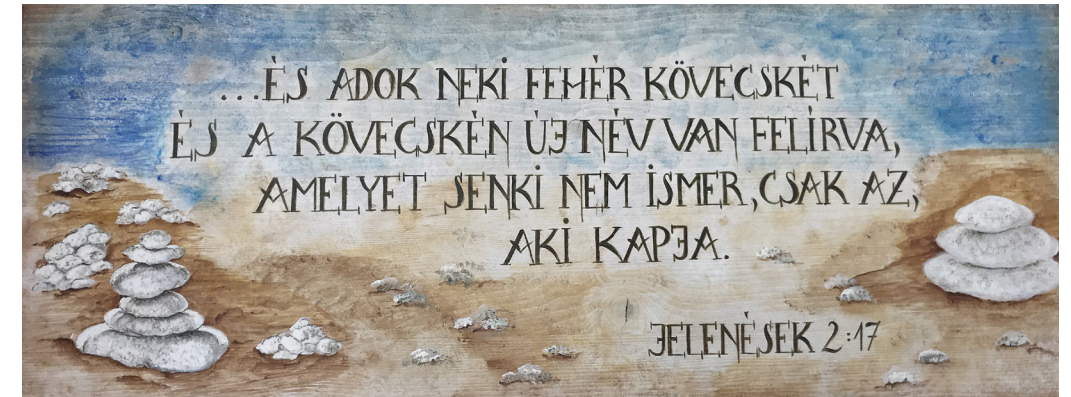 ...ÉS ADOK NEKI FEHÉR KÖVECSKÉT
ÉS A KÖVECSKÉN ÚJ NÉV VAN FELÍRVA,
AMELYET SENKI NEM ISMER, CSAK AZ,
AKI KAPJA.
JELENÉSEK 2:17